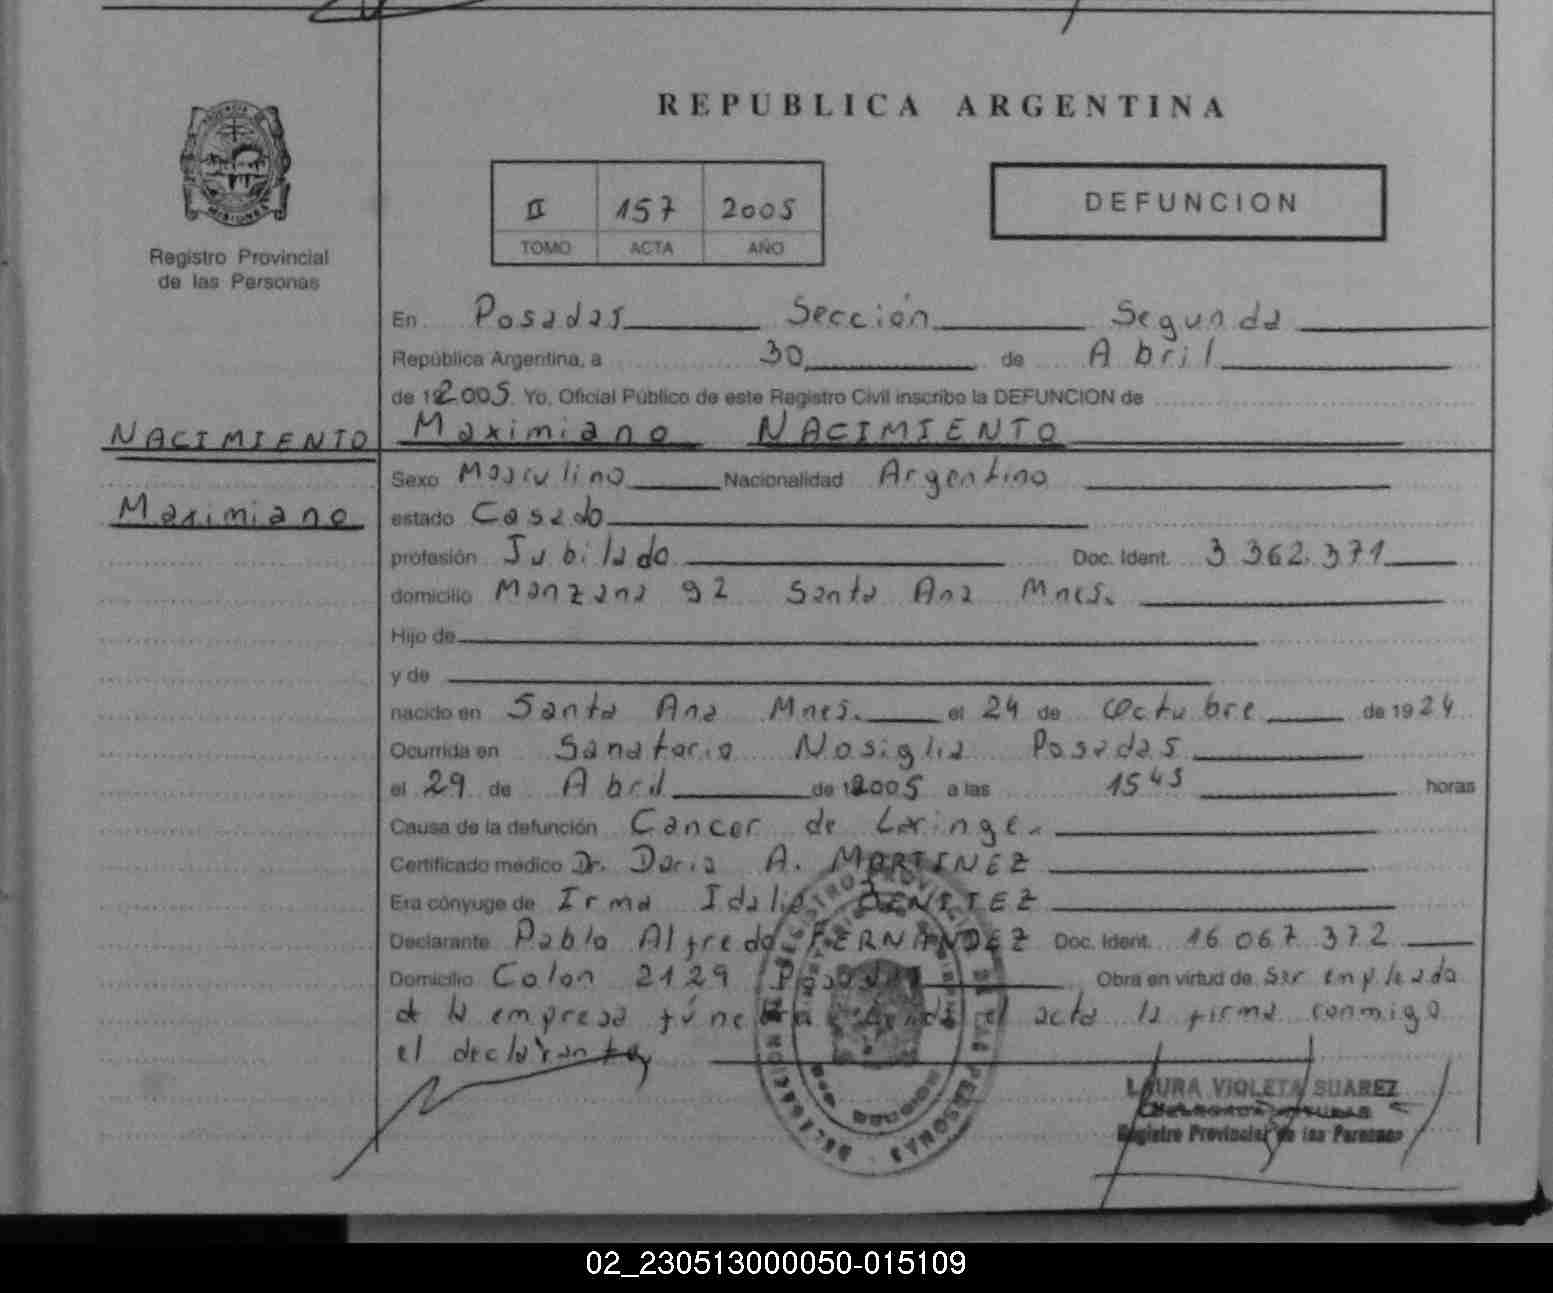 REPUBLICA ARGENTINA
II 157 2005
TOMO ACTA AÑO
DEFUNCION
MISIONES
Registro Provincial
de las Personas
En Posadas Sección Segunda
República Argentina, a 30 de Abril
de 2005. Yo, Oficial Público de este Registro Civil inscribo la DEFUNCION de
NACIMIENTO Maximiano NACIMIENTO
Sexo Masculino Nacionalidad Argentino
Maximiano estado Casado
profesión Jubilado Doc. Ident. 3.362.371
domicilio Manzana 92 Santa Ana Mnes.
Hijo de
y de
nacido en Santa Ana Mnes. el 24 de Octubre de 1924
Ocurrida en Sanatorio Nosiglia Posadas
el 29 de Abril de 2005 a las 15 45 horas
Causa de la defunción Cancer de Laringe.
Certificado médico Dr. Dario A. MARTINEZ
Era cónyuge de Irma Idalia BENITEZ
Declarante Pablo Alfredo FERNANDEZ Doc. Ident. 16.067.372
Domicilio Colon 2129 Posadas Obra en virtud de Ser empleado
de la empresa fúnebre el acta la firma conmigo
el declarante
LAURA VIOLETA SUAREZ
Registro Provincial de las Personas
DELEGACION REGISTRO PROVINCIAL DE LAS PERSONAS
02_230513000050-015109